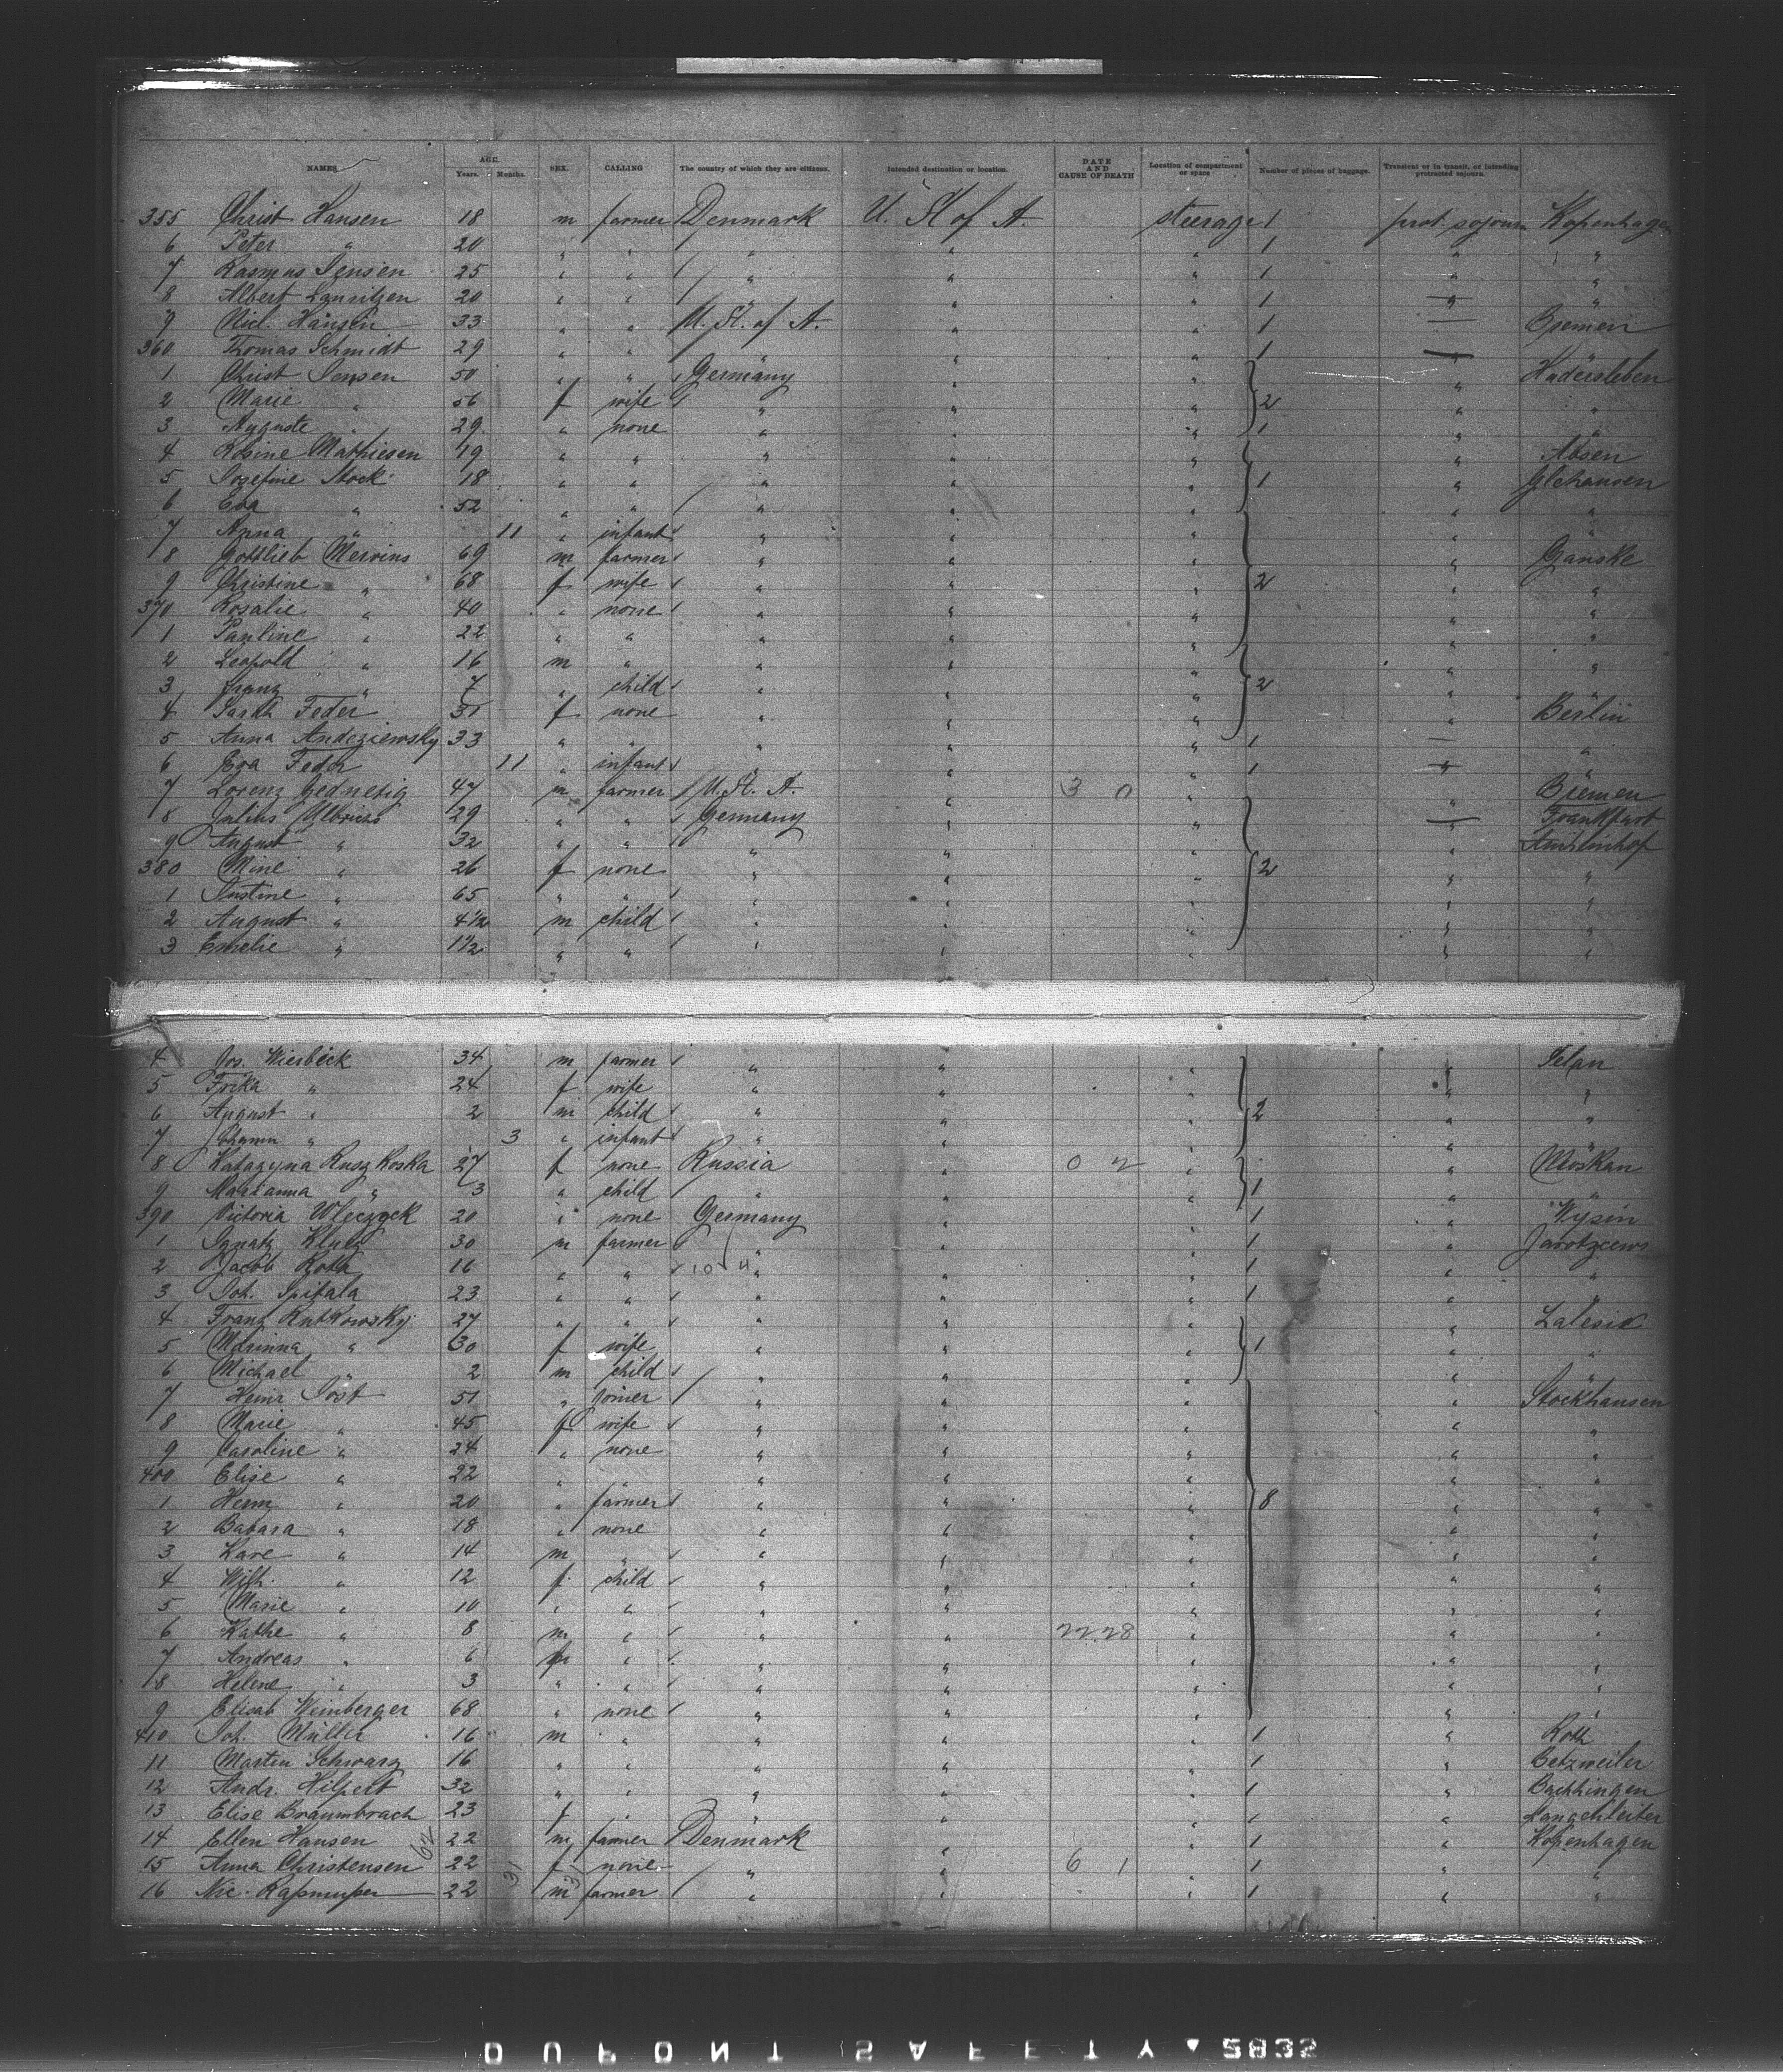 NAMES AGE. Years. Months. SEX. CALLING The country of which they are citizens. Intended destination or location. DATE AND CAUSE OF DEATH Location of compartment or space Number of pieces of baggage. Transient or in transit, or intending protracted sojourn.
355 Christ Hansen 18 m farmer Denmark U. St of A. steerage 1 prot. sojourn Kopenhagen
6 Peter " 20 " " " " " 1 " "
7 Rasmus Jensen 25 " " " " " 1 " "
8 Albert Lauritzen 20 " " " " 1 " "
9 Nicl. Hansen 33 " " U. St. of A. " " 1 Bremen
360 Thomas Schmidt 29 " " " " " 1 "
1 Christ Jensen 50 " " Germany " " " Hadersleben
2 Marie " 56 f wife " " " 2 " "
3 Auguste " 29 " none " " " 1 " "
4 Rosine Mathiesen 19 " " " " " " Absen
5 Josefine Stock 18 " " " " " 1 "
6 Eva " 52 " " " " " "
7 Anna " 11 " infant " " " " "
8 Gottlieb 69 m farmer " " " " Ganske
9 Christine " 68 f wife " " " 2 " "
370 Rosalie " 40 " none " " " " "
1 Pauline " 22 " " " " " " "
2 Leopold " 16 m " " " " " "
3 Franz " 7 " child " " " 2 "
4 Sarah Feder 31 f none " " " " Berlin
5 Anna Andeziewsky 33 " " " " " 1 "
6 Eva Feder 11 " infant " " " 1 " "
7 Lorenz 47 m farmer U. St. A. " 3 0 " " Bremen
8 Julius 29 " " Germany " " Frankfurt
9 August " 32 " " " " " "
380 Mine " 26 f none " " " 2 " "
1 Justine " 65 " " " " " " "
2 August " 4 1/2 m child " " " " "
3 Emelie " 1 1/2 " " " " " " "
4 Jos. Wierbeck 34 m farmer " " " "
5 Frika " 24 f wife " " " " "
6 August " 2 m child " " " 2 " "
7 " 3 " infant " " " " "
8 Katazyna Ruszkoska 27 f none Russia " 0 2 " "
9 Marianna " 3 " child " " " 1 " "
390 Victoria Wleczyck 20 " none Germany " " 1 " Wysin
1 Ignatz 30 m farmer " " " 1 "
2 Jacob Roth 16 " " 10 4 " " " 1 " "
3 Joh. Spitala 23 " " " " " 1 " "
4 Franz Rutkowsky 27 " " " " " "
5 Marinna " 30 f wife " " " 1 " "
6 Michael " 2 m child " " " "
7 Heinr Jost 51 " joiner " " " " Stockhausen
8 Marie " 45 f wife " " " " "
9 Caroline " 24 " none " " " " "
400 Elise " 22 " " " " " " "
1 Herm " 20 " farmer " " " 8 " "
2 Babara " 18 " none " " " " "
3 " 14 m " " " " " "
4 Wilh. " 12 f child " " " " "
5 Marie " 10 " " " " " " "
6 Kathe " 8 m " " " 22.28 " " "
7 Andreas " 6 " " " " " "
8 Helene " 3 " " " " " " "
9 Elisab Weinberger 68 " none " " " " "
410 Joh. Müller 16 m " " " " 1 " Roth
11 Martin Schwarz 16 " " " " " 1 " Betzweiler
12 Andr. Hilpert 32 " " " " " 1 " Bachhingen
13 Elise Braumbrach 23 f " " " " 1 "
14 Ellen Hansen 22 m farmer Denmark " " 1 " Kopenhagen
15 Anna Christensen 22 f none " " 6 1 " 1 " "
16 Nic. Rasmussen 22 m farmer " " " 1 " "
DUPONT SAFETY 2833